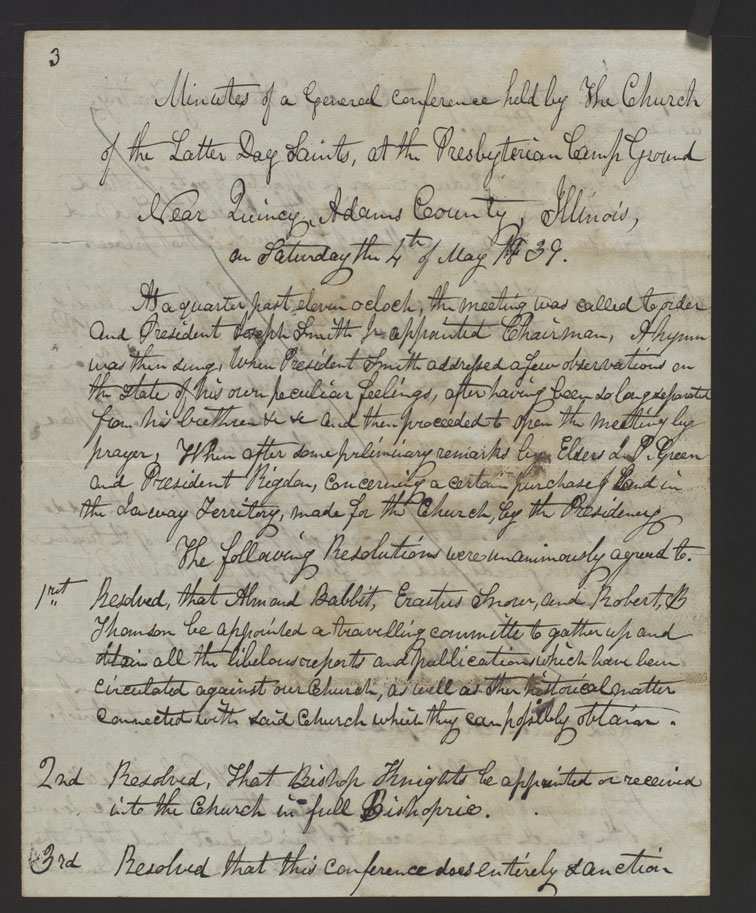 3
Minutes of a General conference held by The Church
of the Latter Day Saints, at the Presbyterian Camp Ground
Near Quincy, Adams County, Illinois,
on Saturday the 4th of May 1839.
At a quarter past eleven oclock, the meeting was called to order
and President Joseph Smith Jr appointed Chairman, A hymn
was then sung, When President Smith addressed a few observations on
the state of his own peculiar feelings, after having been so long separated
from his brethren &c &c and then proceeded to open the meeting by
prayer, When after some preliminary remarks by Elders J. P. Green
and President Rigdon, concerning a certain purchase of Land in
the Ioway Territory, made for the Church, by the Presidency
The following Resolutions were unanimously agreed to.
1rst Resolved, that Almond Babbit, Erastus Snow, and Robert, B
Thomson be appointed a travelling committe to gather up and
obtain all the libelous reports and publications which have been
circulated against our Church, as well as other historical matter
connected with said Church which they can possibly obtain.
2nd Resolved, That Bishop Knights be appointed or received
into the Church in full Bishopric.
3rd Resolved that this conference does entirely sanction